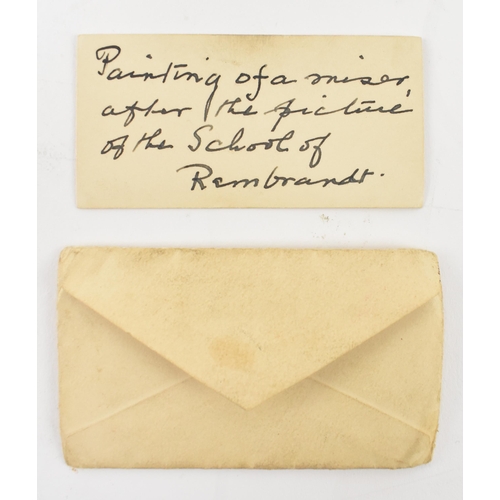 Painting of a miser,
after the picture
of the School of
Rembrandt.